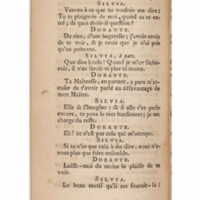 SILVIA.
DORANTE.
De rien, d'une bagatelle; j'avois envie
de te voir, & je crois que je n'ai pris
qu'un prétexte.
SILVIA, à part.
Que dire à cela? Quand je m'en fâcherois,
il n'en seroit ni plus ni moins.
DORANTE.
Ta Maîtresse, en partant, a paru m'accuser
de t'avoir parlé au désavantage de
mon Maître.
SILVIA.
Elle se l'imagine; & si elle t'en parle
encore, tu peux le nier hardiment; je me
charge du reste.
DORANTE.
Eh! ce n'est pas cela qui m'occupe.
SILVIA.
Si tu n'as que cela à me dire, nous n'avons
plus que faire ensemble.
DORANTE.
Laisse-moi du moins le plaisir de te
voir.
SILVIA.
Le beau motif qu'il me fournit-là!